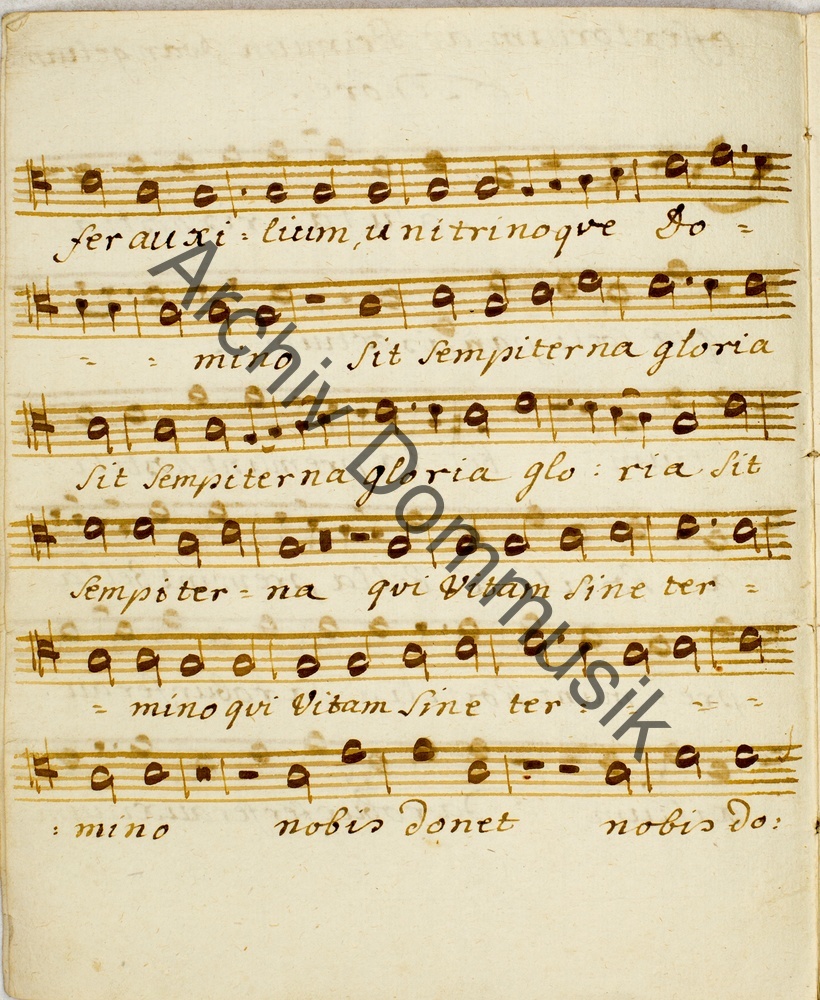 fer auxi = lium, unitrinoqve Do =
= = mino Sit Sempiterna gloria
Sit Sempiterna gloria glo : ria Sit
Sempiter = na qvi Vitam Sine ter =
= mino qvi Vitam Sine ter = = = =
: mino nobis donet nobis do:
Archiv Dommusik